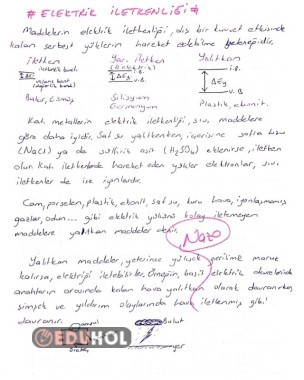 # ELEKTRİK İLETKENLİĞİ #
Maddelerin elektrik iletkenliği, dış bir kuvvet etkisinde
kalan serbest yüklerin hareket edebilme yeteneğidir.
İletken Yarı iletken Yalıtkan
iletkenlik bandı
i.B.
ΔEg
v.B.
i.B.
ΔEg
v.B.
Bakır, Gümüş Silisyum Plastik, ebonit.
Germanyum
Katı metallerin elektrik iletkenliği, sıvı maddelere
göre daha iyidir. Saf su yalıtkanken, içerisine sofra tuzu
(NaCl) ya da sülfirik asit (H₂SO₄) eklenirse, iletken
olur. Katı iletkenlerde hareket eden yükler elektronlar, sıvı
iletkenler de ise iyonlardır.
Cam, porselen, plastik, ebonit, saf su, kuru hava, iyonlaşmamış
gazlar, odun... gibi elektrik yükünü kolay iletemeyen
maddelere yalıtkan maddeler denir.
Nazo
Yalıtkan maddeler, yeterince yüksek gerilime maruz
kalırsa, elektriği iletebilirler. Örneğin, basit elektrik devrelerinde
anahtarın arasında kalan hava yalıtkan olarak davranırken,
şimşek ve yıldırım olaylarında hava iletkenmiş gibi
davranır.
EDUKOL
Bulut
yer